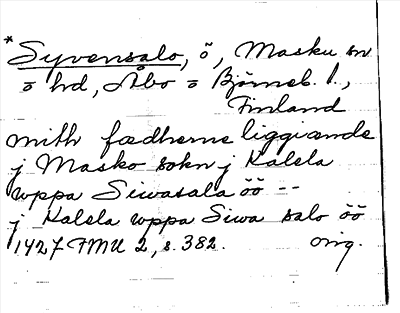 *Syvensalo, ö, Masku sn
o hd, Åbo o Björneb. l.,
Finland
mith fædherne liggiande
j Masko sokn j Kalela
uppa Siwasala öö --
j Kalela uppa Siwa salo öö
1427 FMU 2, s. 382. orig.